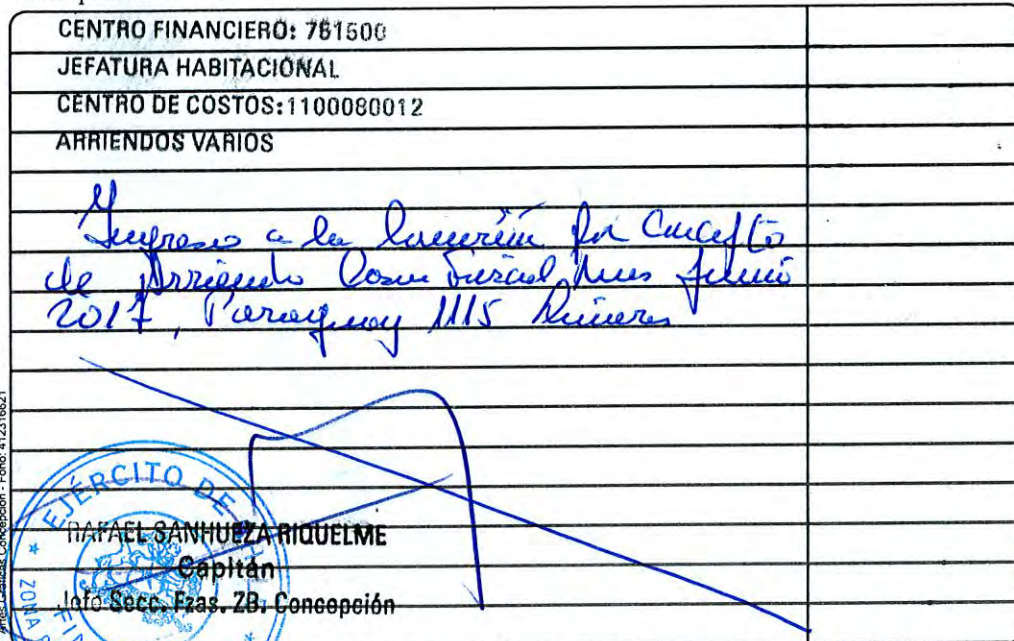 CENTRO FINANCIERO: 761500
JEFATURA HABITACIONAL
CENTRO DE COSTOS:1100080012
ARRIENDOS VARIOS
Ingreso a la por Concepto
de Arriendo Casa Fiscal, mes Junio
2017, Paraguay 1115
Artes Gráficas Concepción - Fono: 412316621
EJÉRCITO DE
RAFAEL SANHUEZA RIQUELME
Capitán
Jefe Secc. Fzas. ZB. Concepción
ZONA
FIN